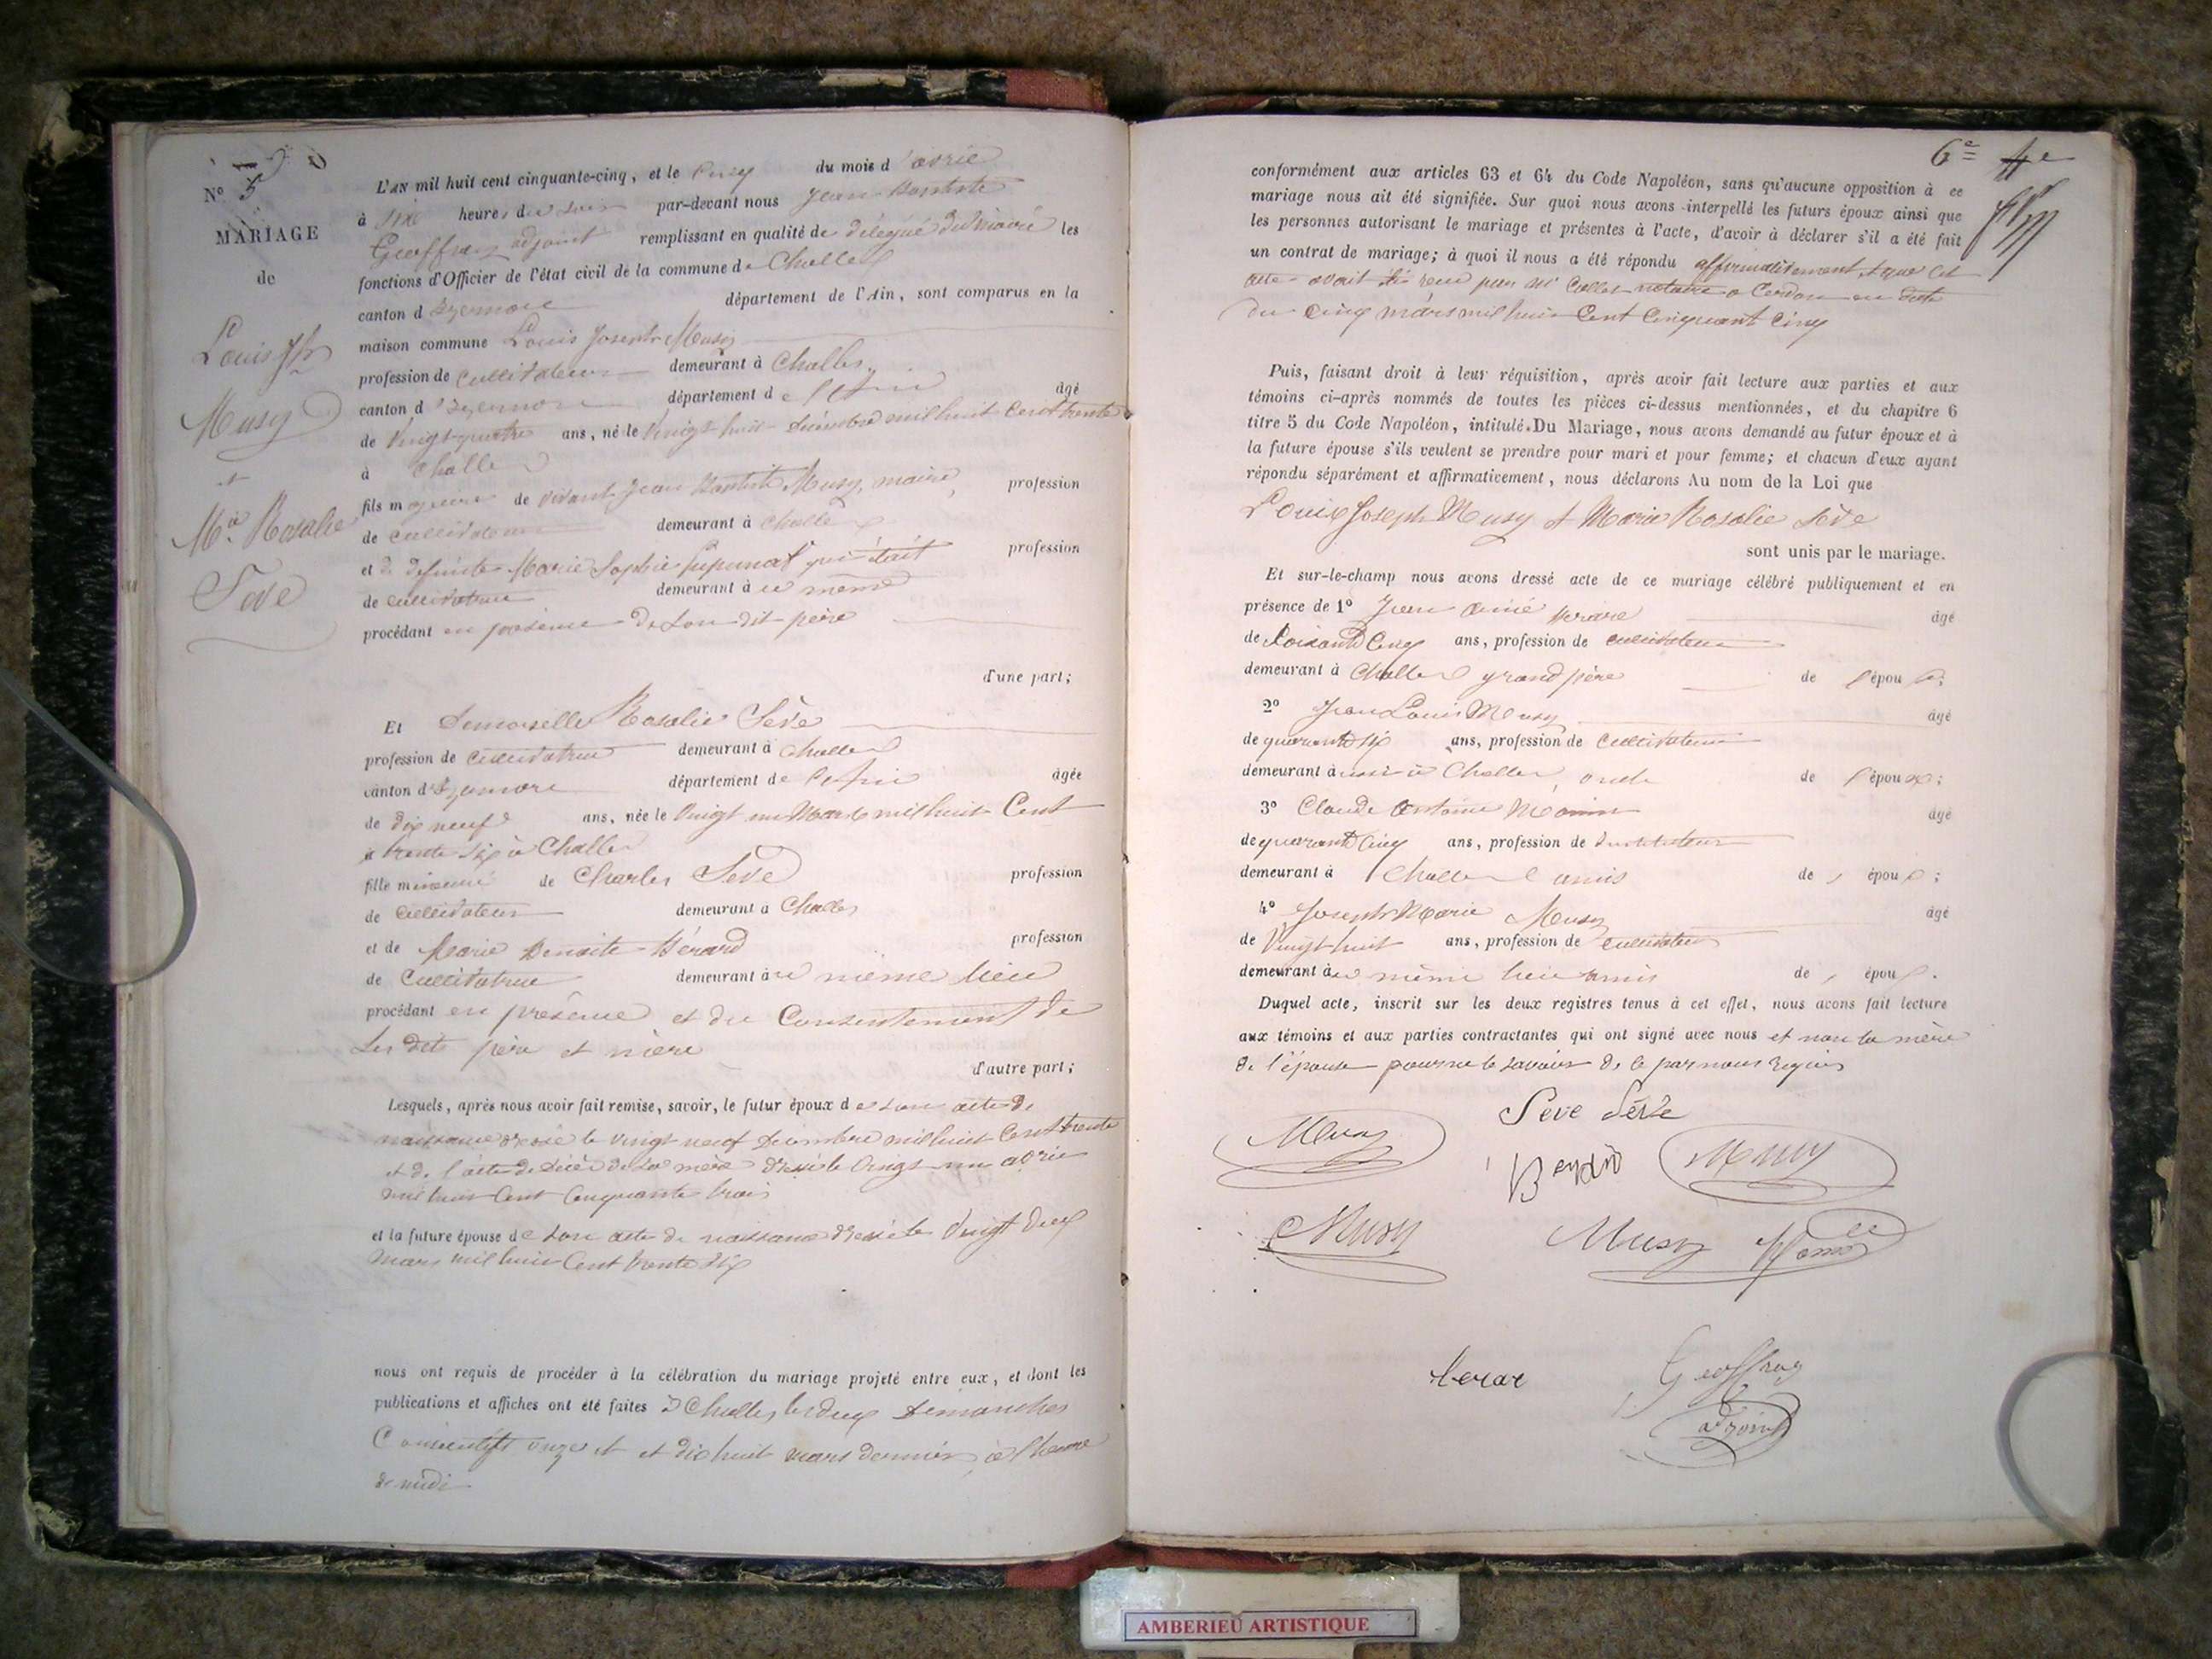 N° 5
MARIAGE
de
Louis Jph
Musy
et
Mie Rosalie
Sève
L'AN mil huit cent cinquante-cinq, et le cinq du mois d'avril
à six heures du soir par-devant nous Jean Baptiste
Geoffray adjoint remplissant en qualité de délégué du maire les
fonctions d'Officier de l'état civil de la commune de Challes
canton d'Izernore département de l'Ain, sont comparus en la
maison commune Louis Joseph Musy
profession de cultivateur demeurant à Challes
canton d'Izernore département de l'Ain âgé
de vingt quatre ans, né le vingt huit décembre mil huit cent trente
à Challes
fils majeur de vivant Jean Baptiste Musy, maire, profession
de cultivateur demeurant à Challes
et de défunte Marie Sophie qui était profession
de cultivatrice demeurant à ce même
procédant en présence de son dit père
d'une part;
Et demoiselle Rosalie Sève
profession de cultivatrice demeurant à Challes
canton d'Izernore département de l'Ain âgée
de dix neuf ans, née le vingt un mars mil huit cent
trente six à Challes
fille mineure de Charles Sève profession
de cultivateur demeurant à Challes
et de Marie Benoite Bérard profession
de cultivatrice demeurant à ce même lieu
procédant en présence et du consentement de
ses dits père et mère
d'autre part;
Lesquels, après nous avoir fait remise, savoir, le futur époux de son acte de
naissance dressé le vingt neuf décembre mil huit cent trente
et de l'acte de décès de sa mère dressé le vingt un avril
mil huit cent cinquante trois
et la future épouse de son acte de naissance dressé le vingt deux
mars mil huit cent trente six
nous ont requis de procéder à la célébration du mariage projeté entre eux, et dont les
publications et affiches ont été faites à Challes les deux dimanches
consécutifs onze et et dix huit mars dernier à l'heure
de midi
6e 4e
conformément aux articles 63 et 64 du Code Napoléon, sans qu'aucune opposition à ce
mariage nous ait été signifiée. Sur quoi nous avons interpellé les futurs époux ainsi que
les personnes autorisant le mariage et présentes à l'acte, d'avoir à déclarer s'il a été fait
un contrat de mariage; à quoi il nous a été répondu affirmativement et que cet
acte avait été reçu par Me Collet notaire à Cerdon en date
du cinq mars mil huit cent cinquant cinq
Puis, faisant droit à leur réquisition, après avoir fait lecture aux parties et aux
témoins ci-après nommés de toutes les pièces ci-dessus mentionnées, et du chapitre 6
titre 5 du Code Napoléon, intitulé Du Mariage, nous avons demandé au futur époux et à
la future épouse s'ils veulent se prendre pour mari et pour femme; et chacun d'eux ayant
répondu séparément et affirmativement, nous déclarons Au nom de la Loi que
Louis Joseph Musy et Marie Rosalie Sève
sont unis par le mariage.
Et sur-le-champ nous avons dressé acte de ce mariage célébré publiquement et en
présence de 1° Jean Aimé âgé
de soixante cinq ans, profession de cultivateur
demeurant à Challes grand père de l'épouse;
2° Jean Louis Musy âgé
de quarante six ans, profession de cultivateur
demeurant aussi à Challes, oncle de l'époux;
3° Claude Antoine âgé
de quarante cinq ans, profession de instituteur
demeurant à Challes amis de époux;
4° Joseph Marie Musy âgé
de vingt huit ans, profession de cultivateur
demeurant à ce même lieu amis de époux.
Duquel acte, inscrit sur les deux registres tenus à cet effet, nous avons fait lecture
aux témoins et aux parties contractantes qui ont signé avec nous et non la mère
de l'épouse pour ne le savoir de ce par nous requis
Seve Sève
Musy
Musy
Musy
Musy
Geoffray
adjoint
AMBERIEU ARTISTIQUE